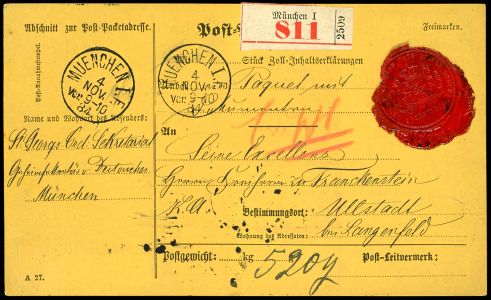 Abschnitt zur Post-Packetadresse.
Post-
Freimarken.
München I
811
2509
Post-Annahmestempel.
MUENCHEN I.
4
NOV.
Vor. 9-10
MUENCHEN I.
4
NOV.
Vor. 9-10
Stück Zoll-Inhaltserklärungen
Paquet mit
Name und Wohnort des Absenders:
St. Georgs Ord. Sekretariat
München
An
Seine Excellenz
Herrn Freiherrn zu Franckenstein
Bestimmungsort: Ullstadt
bei Langenfeld
Wohnung des Adressaten:
Postgewicht: kg 520 g
Post-Leitvermerk:
A 27.